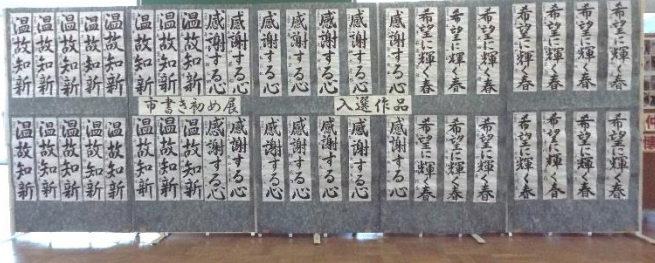 希望に輝く春
希望に輝く春
希望に輝く春
希望に輝く春
希望に輝く春
希望に輝く春
希望に輝く春
感謝する心
感謝する心
感謝する心
感謝する心
感謝する心
感謝する心
感謝する心
温故知新
温故知新
温故知新
温故知新
温故知新
温故知新
温故知新
温故知新
市書き初め展
入選作品
希望に輝く春
希望に輝く春
希望に輝く春
希望に輝く春
希望に輝く春
希望に輝く春
希望に輝く春
感謝する心
感謝する心
感謝する心
感謝する心
感謝する心
感謝する心
感謝する心
温故知新
温故知新
温故知新
温故知新
温故知新
温故知新
温故知新
温故知新